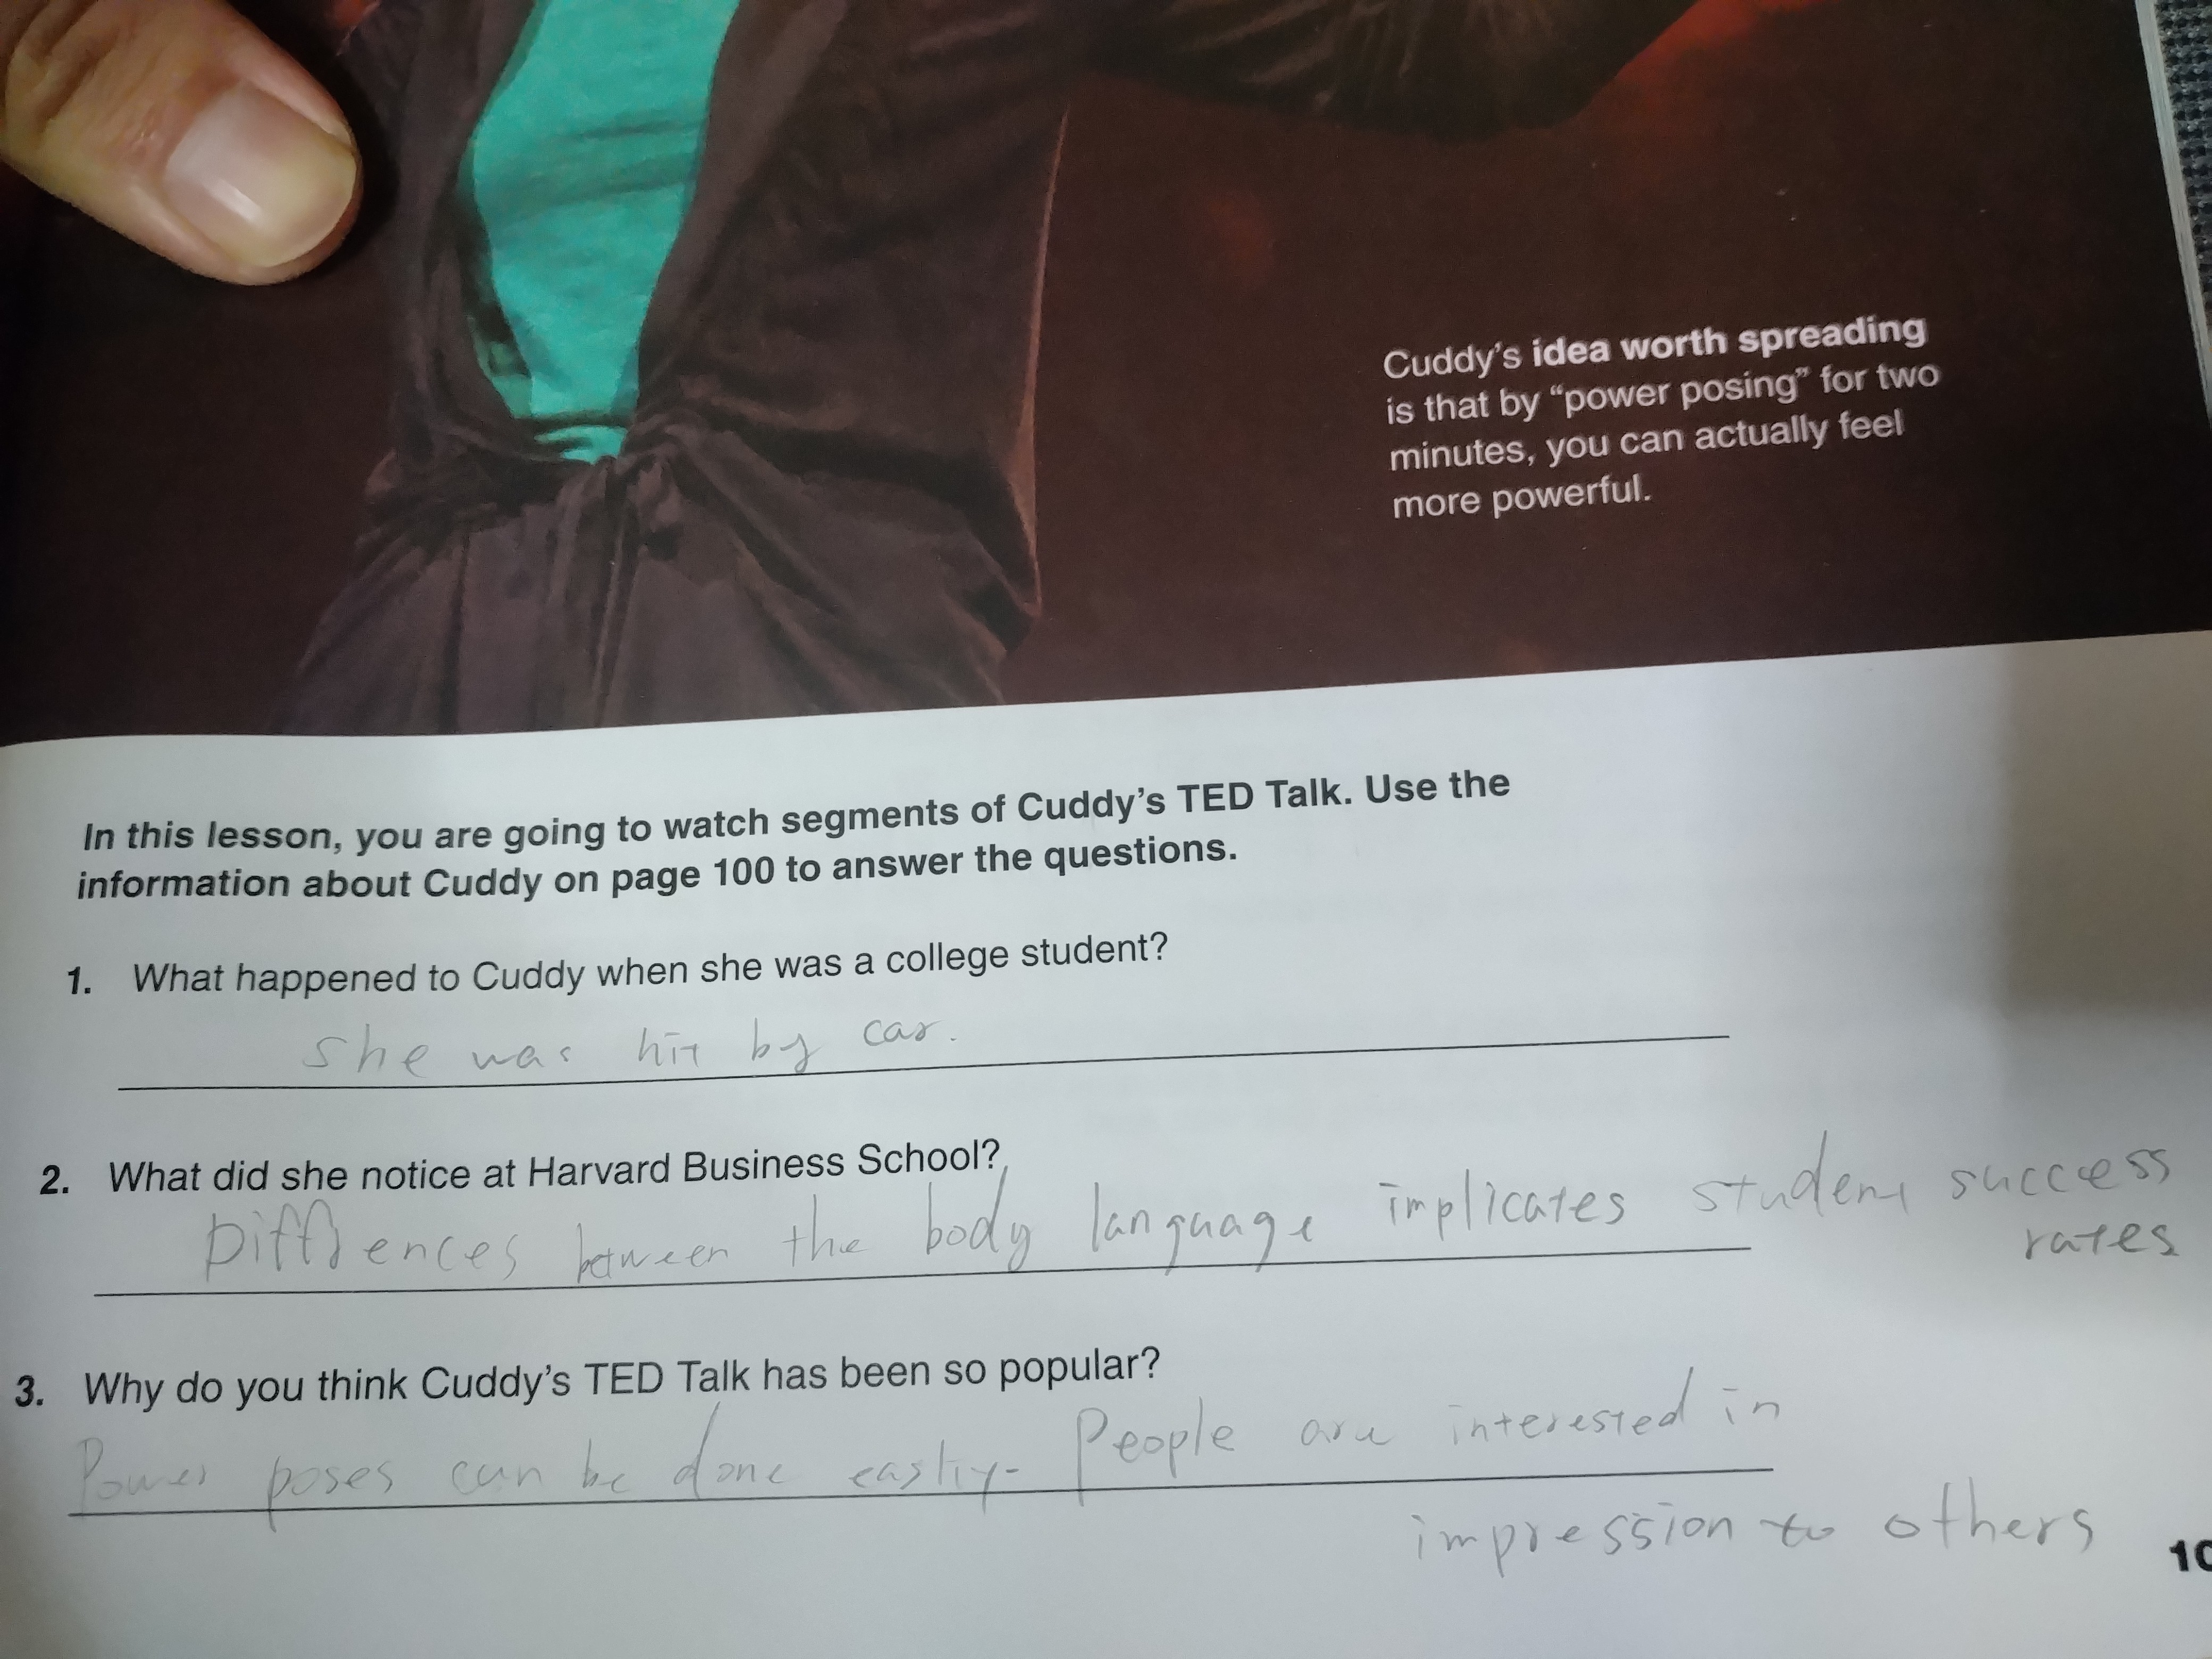 Cuddy's idea worth spreading
is that by “power posing” for two
minutes, you can actually feel
more powerful.
In this lesson, you are going to watch segments of Cuddy's TED Talk. Use the
information about Cuddy on page 100 to answer the questions.
1. What happened to Cuddy when she was a college student?
She was hit by car.
2. What did she notice at Harvard Business School?
between the body language implicates student success
rates
3. Why do you think Cuddy's TED Talk has been so popular?
Power poses can be done People are interested in
impression to others